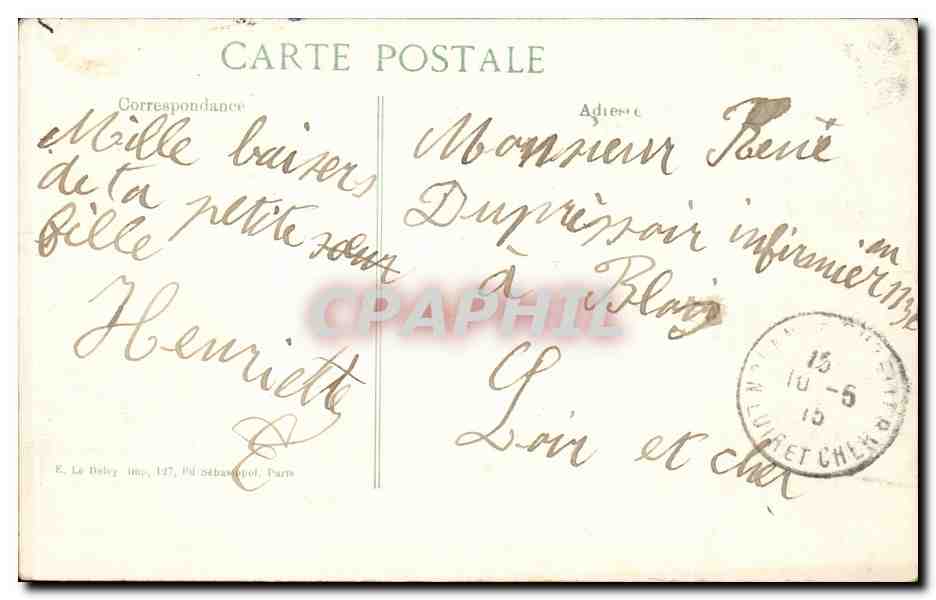 CARTE POSTALE
Correspondance
Adresse
Mille baisers
de ta petite sœur
fille
Henriette
Monsieur René
Dupressoir infirmier au
à Blois
Loir et cher
15
10 -6
15
LOIR ET CHER
E. Le Deley imp., 127, Bd Sébastopol, Paris
CPAPHIL